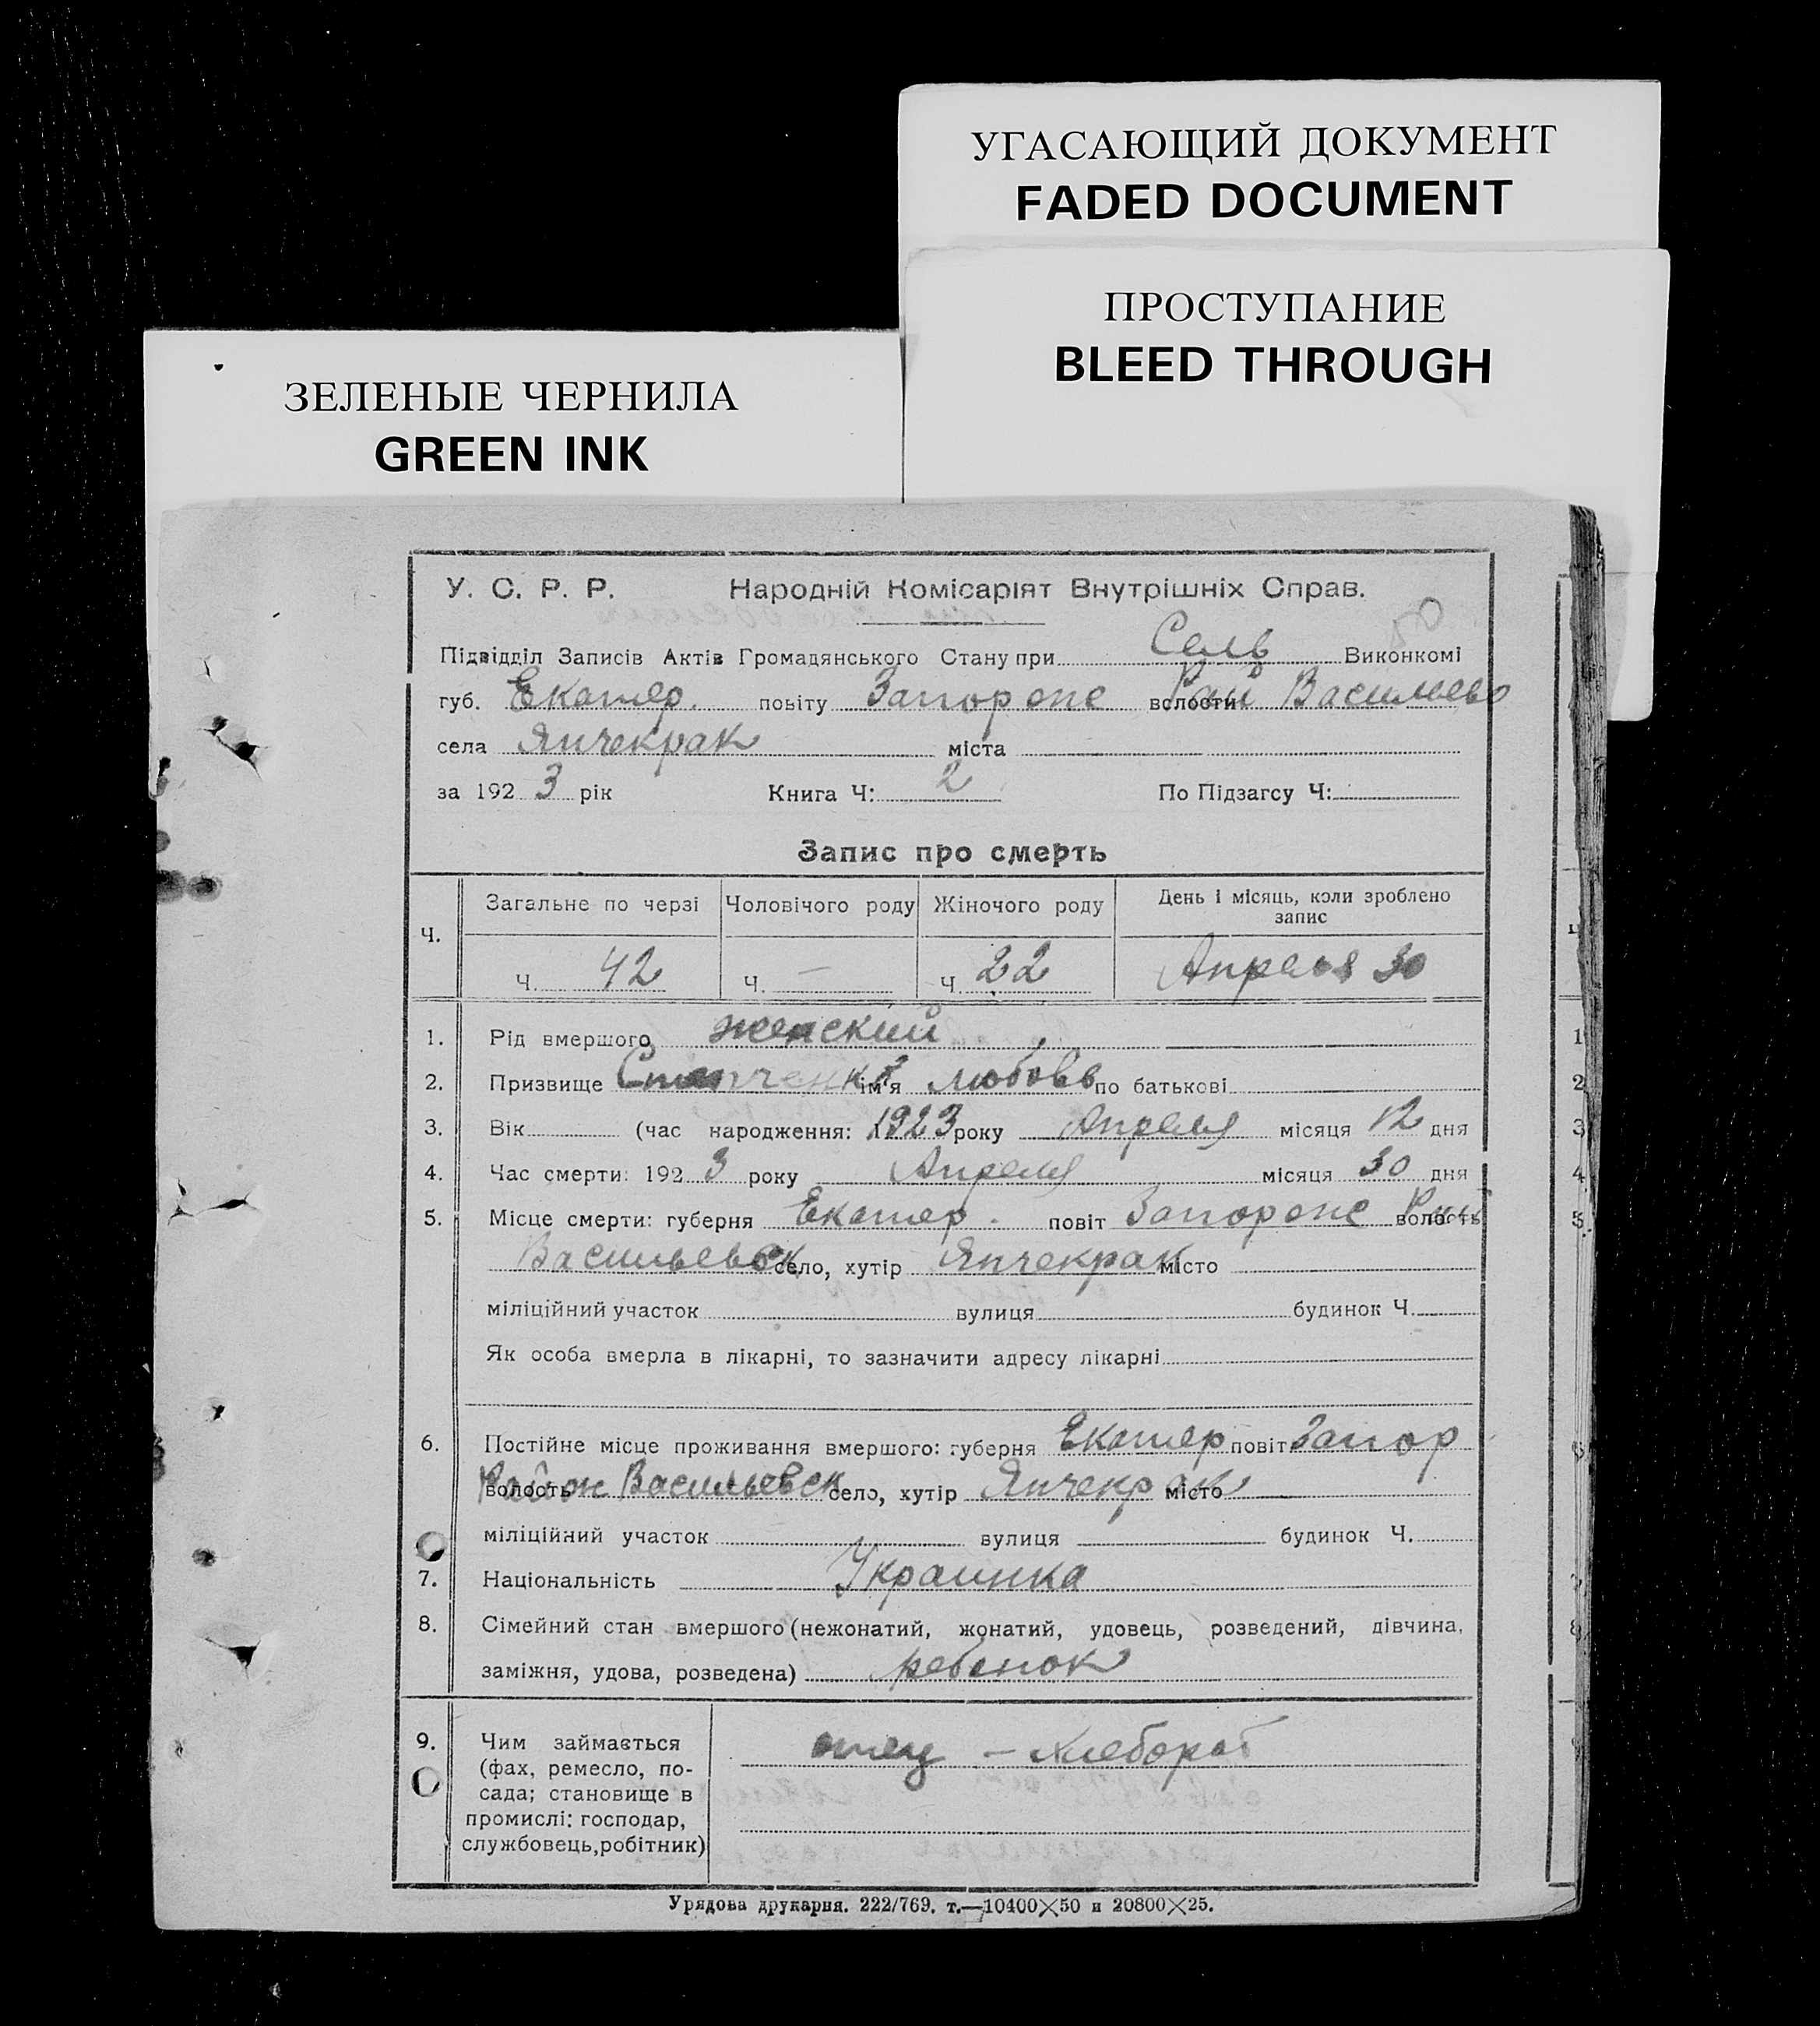 УГАСАЮЩИЙ ДОКУМЕНТ
FADED DOCUMENT
ПРОСТУПАНИЕ
BLEED THROUGH
ЗЕЛЕНЫЕ ЧЕРНИЛА
GREEN INK
У. С. Р. Р. Народній Комісаріят Внутрішніх Справ.
Підвідділ Записів Актів Громадянського Стану при Сель Виконкомі
губ. Екатер. повіту Запорож волости Рай Васильево
села Янчекрак міста
за 1923 рік Книга Ч: 2 По Підзагсу Ч:
Запис про смерть
Ч. Загальне по черзі Чоловічого роду Жіночого роду День і місяць, коли зроблено запис
Ч. 42 Ч. — Ч. 22 Апреля 30
1. Рід вмершого женский
2. Призвище ім'я Любовь по батькові
3. Вік (час народження: 1923 року Апреля місяця 12 дня
4. Час смерти: 1923 року Апреля місяця 30 дня
5. Місце смерти: губерня Екатер. повіт Запорож волость Рай
Васильевск село, хутір Янчекрак місто
міліційний участок вулиця будинок Ч.
Як особа вмерла в лікарні, то зазначити адресу лікарні
6. Постійне місце проживання вмершого: губерня Екатер повіт Запор
волость Район Васильевск село, хутір Янчекрак місто
міліційний участок вулиця будинок Ч.
7. Національність Украинка
8. Сімейний стан вмершого (нежонатий, жонатий, удовець, розведений, дівчина,
заміжня, удова, розведена) ребенок
9. Чим займається отец – хлебороб
(фах, ремесло, по-
сада; становище в
промислі: господар,
службовець, робітник)
Урядова друкарня. 222/769. т.—10400×50 и 20800×25.